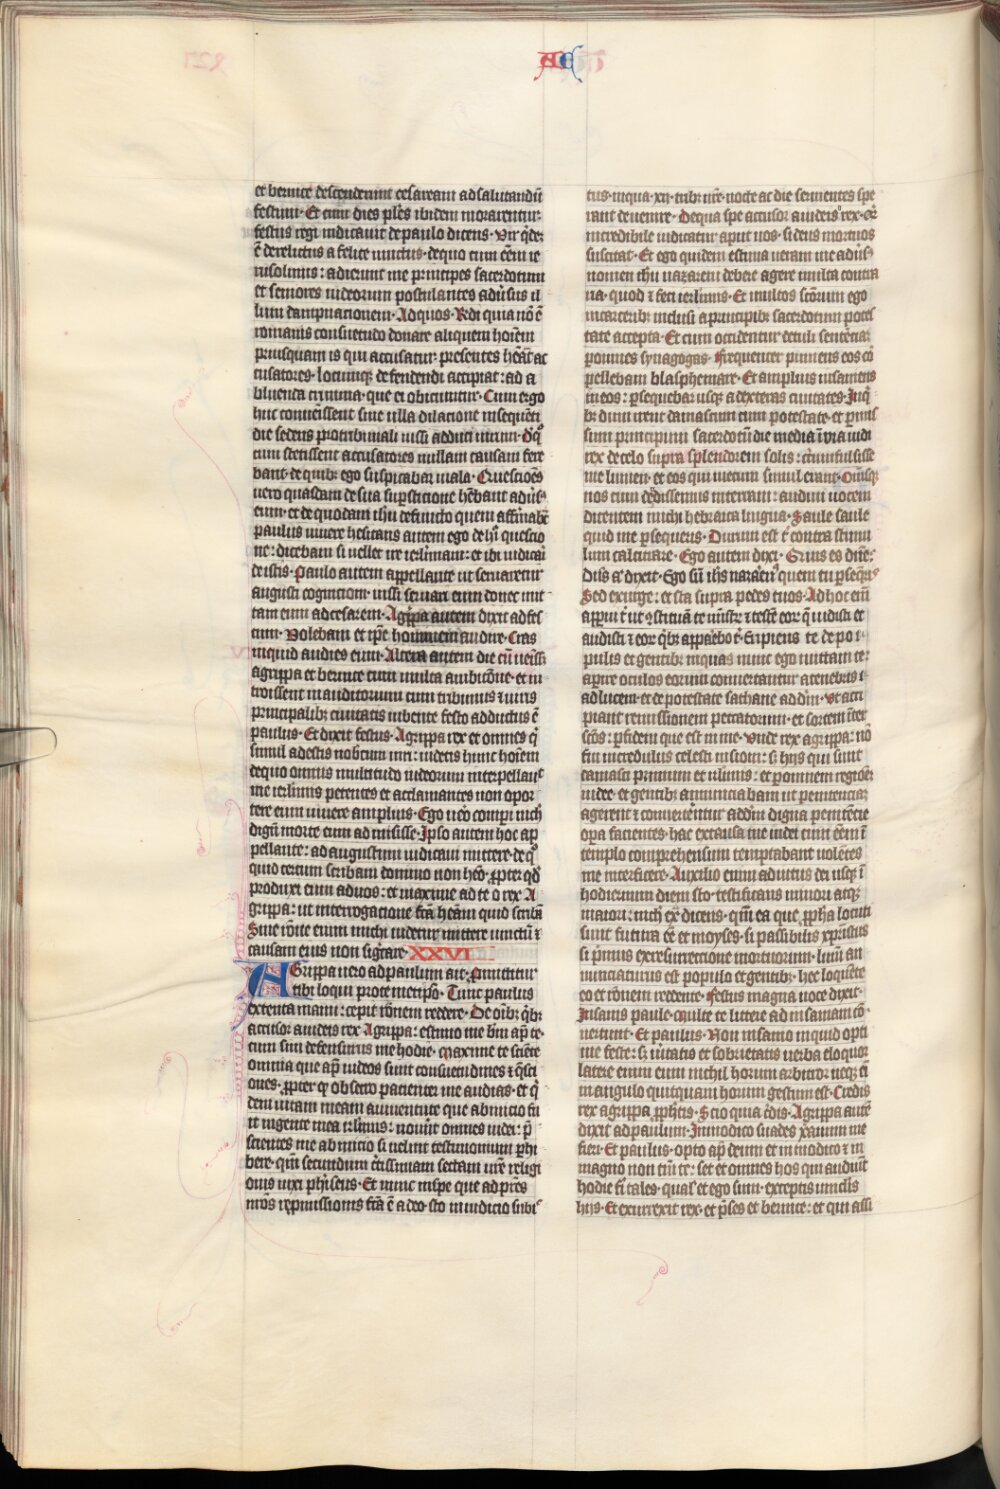 AC
et bernice descenderunt cesaream ad salutandū
festum · Et cum dies pl̄es ibidem morarentur·
festus regi indicauit de paulo dicens · Vir q̄dē
ē derelictus a felice uinctus · de quo cum eēm ie
rusolimis : adierunt me principes sacerdotum
et seniores iudeorum postulantes adūsus il
lum dampnacionem · Ad quos · Rñdi quia nō ē
romanis consuetudo donare aliquem hoīem
priusquam is qui accusatur · presentes hēat ac
cusatores · locumq; defendendi accipiat : ad a
bluenda crimina · que ei obiciuntur · Cum ergo
huc conuenissent sine ulla dilacione insequēti
die sedens pro tribunali iussi adduci uirum · d'q°
cum stetissent accusatores nullam causam fere
bant · de quib; ego suspicabar mala · Questiōes
uero quasdam de sua supsticione hēbant adūs
eum · et de quodam ihu defuncto quem affirmabt
paulus uiuere hesitans autem ego de hi' questio
ne : dicebam si uellet ire ierlimam : et ibi iudicari
de istis · Paulo autem appellante ut seruaretur
augusti cognicioni · iussi seruari eum donec mit
tam eum ad cesarem · Agrippa autem dixit ad fes
tum · Volebam et ipē hominem audire · Cras
inquid audies eum · Altera autem die cū ueniss;
agrippa et bernice cum multa ambicōne · et in
troissent in auditorium cum tribunis ⁊ uiris
principalib; ciuitatis iubente festo adductus ē
paulus · Et dixit festus · Agrippa rex et omnes q̄
simul adestis nobiscum uiri : uidetis hunc hoīem
de quo omnis multitudo iudeorum interpellauit
me ierlimis petentes et acclamantes non opor
tere eum uiuere amplius · Ego uēo comperi nich
dignū morte eum admisisse · Ipso autem hoc ap
pellante : ad augustum iudicaui mittere · de q°
quid certum scribam domino non hēo · Ppter qd̄
produxi eum ad uos : et maxime ad te o rex A
grippa : ut interrogacione fc̄a hēam quid scribā
Sine rōne enim michi uidetur mittere uinctū ⁊
causam eius non sig'care · XXVI
AGrippa uero ad paulum ait · Pmittitur
tibi loqui pro temetipso · Tunc paulus
extenta manu : cepit rōnem reddere · De oīb; q'b;
accusor a iudeis rex Agrippa : estimo me bm̄ ap̄ te ·
cum sim defensurus me hodie · Maxime te sciēte
omnia que ap̄ iudeos sunt consuetudines ⁊ q̄sti
ones · ppter qr̄ obsecro pacienter me audias · et q̄
dem uitam meam a iuuentute que ab inicio fu
it in gente mea ierlimis : nouūt omnes iudei · p̄
scientes me ab inicio si uelint testimonium phi
bere · qm̄ secundum c̄tissimam sectam nr̄e religi
onis uixi phiseus · Et nunc in spe que ad pr̄es
nr̄os repmissionis fc̄a ē a deo · sto in iudicio subi
tus · in qua · xii · trib; nr̄e · nocte ac die seruientes spe
rant deuenire · De qua spe accusor a iudeis rex · Q'
incredibile iudicatur aput uos · si deus mortuos
suscitat · Et ego quidem estima ueram me adūs
nomen ihu nazareni debere agere multa contra
ria · quod ⁊ feci ierlimis · Et multos scōrum ego
in carcerib; inclusi a principib; sacerdotum potes
tate accepta · Et cum occiderentur detuli sentēciā:
p omnes synagogas · frequenter puniens eos cō
pellebam blasphemare · Et amplius insaniens
in eos : psequebar usq; ad exteras ciuitates · In q'
b; dum irem damascum cum potestate · et pmis
sum principum sacerdotū die media ī uia uidi
rex de celo supra splendorem solis : c̄cumfulsisse
me lumen · et eos qui mecum simul erant · Oīsq;
nos cum decidissemus in terram : audiui uocem
dicentem michi hebraica lingua · Saule saule
quid me psequeris · Durum est t' contra stimu
lum calcitrare · Ego autem dixi · Quis es dn̄e:
Dn̄s at' dixit · Ego sū ih̄s nazaren' quem tu pseq̄ris
Sed exurge : et sta supra pedes tuos · Ad hoc eni
apparui t' ut 9stituā te ministr' ⁊ testē eor' q̄ uidisti et
audisti ⁊ eor' q'b; apparebo t' · Eripiens te de po i·
pulis et gentib; in quas nunc ego mittam te:
apire oculos eorum conuertantur a tenebris ī
ad lucem · et de potestate sathane ad dm̄ · ut acci
piant remissionem peccatorum · et sortem inter
scōs : p fidem que est in me · Vnde rex agrippa : nō
fui incredulus celesti uisioni : s; hijs qui sunt
damasci primum et ierlimis : et p omnem regionē
iudee · et gentib; annunciabam ut penitenciā
agerent ⁊ conuerterentur ad dm̄ digna penitēcie
opa facientes · hac ex causa me iudei cum eēm ī
templo comprehensum temptabant uolētes
me interficere · Auxilio enim adiutus dei usq; ī
hodiernum diem sto · testificans minori atq;
maiori : nich ex̄ dicens · qm̄ ea que pp̄ha locuti
sunt futura eē et moyses · si passibilis xpistus
si p̄mus ex resurrectione mortuorum · lum̄ an
nunciaturus est populo et gentib; · hec loquēte
eo et rōnem reddente · Festus magna uoce dixit ·
Insanis paule · Multe te littere ad insaniam cō·
uertunt · Et paulus · Non insanio inquid opti
me feste : s; ūitatis et sobrietatis uerba eloquor
latere enim eum nichil horum arbitror neq; ei
in angulo quitquam horum gestum est · Credis
rex agrippa pp̄hetis · Scio quia c̄dis · Agrippa autē
dixit ad paulum · Immodico suades xp̄anum me
fieri · Et paulus · opto ap̄ deum et in modico ⁊ in
magno non tm̄ te : set et omnes hos qui audiūt
hodie fi'i tales · qual' et ego sum · exceptis uinclis
hijs · Et exurrexit rex · et p̄ses et bernice : et qui assi